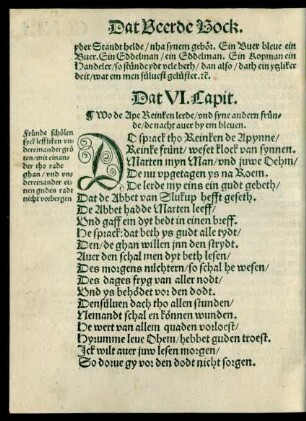 Dat Veerde Bock.
yder Standt helde / nha synem gebör. Ein Buer bleue ein
Buer. Ein Eddelman / ein Eddelman. Ein Kopman ein
Handeler / so stünde ydt vele beth / dan also / dath ein ytzliker
deit / wat em men süluest gelüstet. ꝛc.
Dat VI. Capit.
¶ Wo de Ape Reinken lerde / vnd syne andern frün-
de / de nacht auer by em bleuen.
Fründe schölen
syck leffliken vn
dereinander grö
ten / mit einan
der tho rade
ghan / vnd vn
dereinander ei
nen gudes rad
nicht vorbergen
DO sprack tho Reinken de Apynne /
Reinke fründt / weset klock van synnen.
Marten myn Man / vnd juwe Oehm /
De nu vpgetagen ys na Roem.
De lerde my eins ein gudt gebeth /
Dat de Abbet van Slukup hefft geseth.
De Abbet hadde Marten leeff /
Vnd gaff em dyt bedt in einen breff.
He sprack: dat beth ys gudt alle tydt /
Den / de ghan willen jnn den strydt.
Auer den schal men dyt beth lesen /
Des morgens nüchtern / so schal he wesen /
Des dages fryg van aller nodt /
Vnd ys behödet vor den dodt.
Densüluen dach tho allen stunden /
Nemandt schal en können wunden.
He wert van allem quaden vorloest /
Hyrumme leue Ohem / hebbet guden troest.
Ick wilt auer juw lesen morgen /
So dörue gy vor den dodt nicht sorgen.